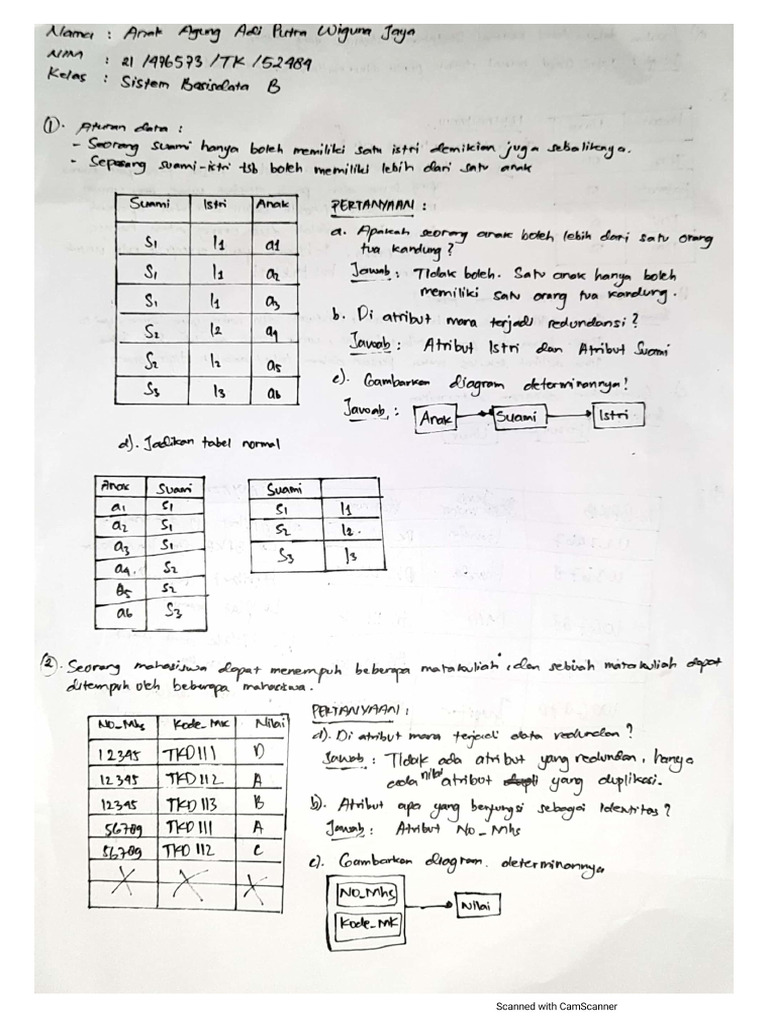 Nama : Anak Agung Adi Putra Wiguna Jaya
NIM : 21/476573/TK/52484
Kelas : Sistem Basisdata B
①. Aturan data :
- Seorang suami hanya boleh memiliki satu istri demikian juga sebaliknya.
- Sepasang suami-istri tsb boleh memiliki lebih dari satu anak
Suami Istri Anak
S1 I1 a1
S1 I1 a2
S1 I1 a3
S2 I2 a4
S2 I2 a5
S3 I3 a6
PERTANYAAN :
a. Apakah seorang anak boleh lebih dari satu orang
tua kandung ?
Jawab : Tidak boleh. Satu anak hanya boleh
memiliki satu orang tua kandung.
b. Di atribut mana terjadi redundansi ?
Jawab : Atribut Istri dan Atribut Suami
c). Gambarkan diagram determinannya !
Jawab : Anak Suami Istri
d). Jadikan tabel normal
Anak Suami
a1 S1
a2 S1
a3 S1
a4 S2
a5 S2
a6 S3
Suami
S1 I1
S2 I2.
S3 I3
②. Seorang mahasiswa dapat menempuh beberapa matakuliah, dan sebuah matakuliah dapat
ditempuh oleh beberapa mahasiswa.
No_Mhs Kode_MK Nilai
12345 TKD111 D
12345 TKD112 A
12345 TKD113 B
56789 TKD111 A
56789 TKD112 C
PERTANYAAN :
a). Di atribut mana terjadi data redundan ?
Jawab : Tidak ada atribut yang redundan, hanya
ada nilai atribut yang duplikasi.
b). Atribut apa yang berfungsi sebagai Identitas ?
Jawab : Atribut No_Mhs
c). Gambarkan diagram determinannya
No_Mhs
Kode_MK
Nilai
Scanned with CamScanner